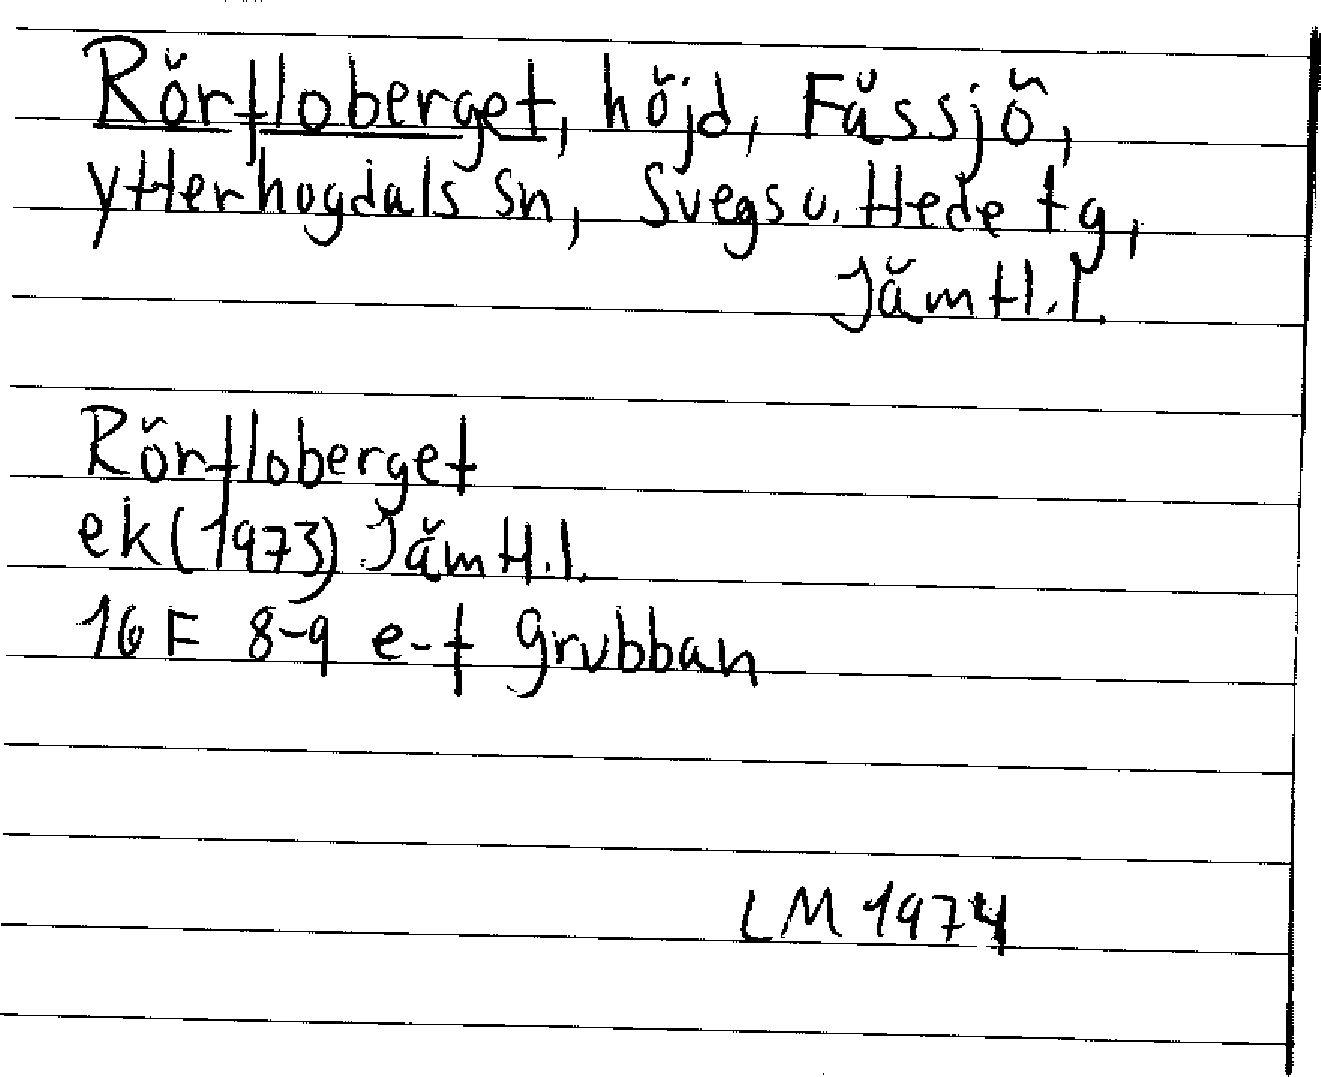 Rörfloberget, höjd, Fåssjö,
Ytterhogdals sn, Svegs o. Hede tg,
Jämtl. l.
Rörfloberget
ek (1973) Jämtl. l.
16 F 8-9 e-f Grubban
LM 1974